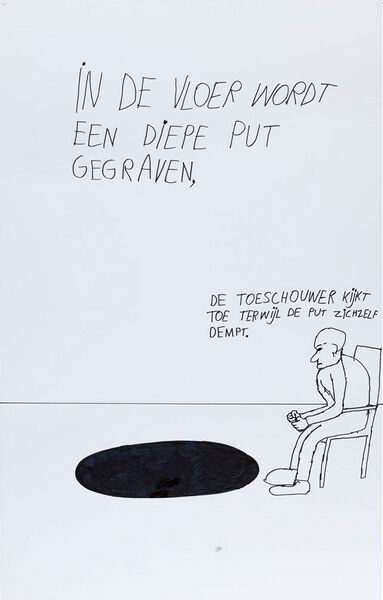 iN DE VLOER WORDT
EEN DIEPE PUT
GEGRAVEN,
DE TOESCHOUWER KijKT
TOE TERWijL DE PUT ZiCHZELF
DEMPT.